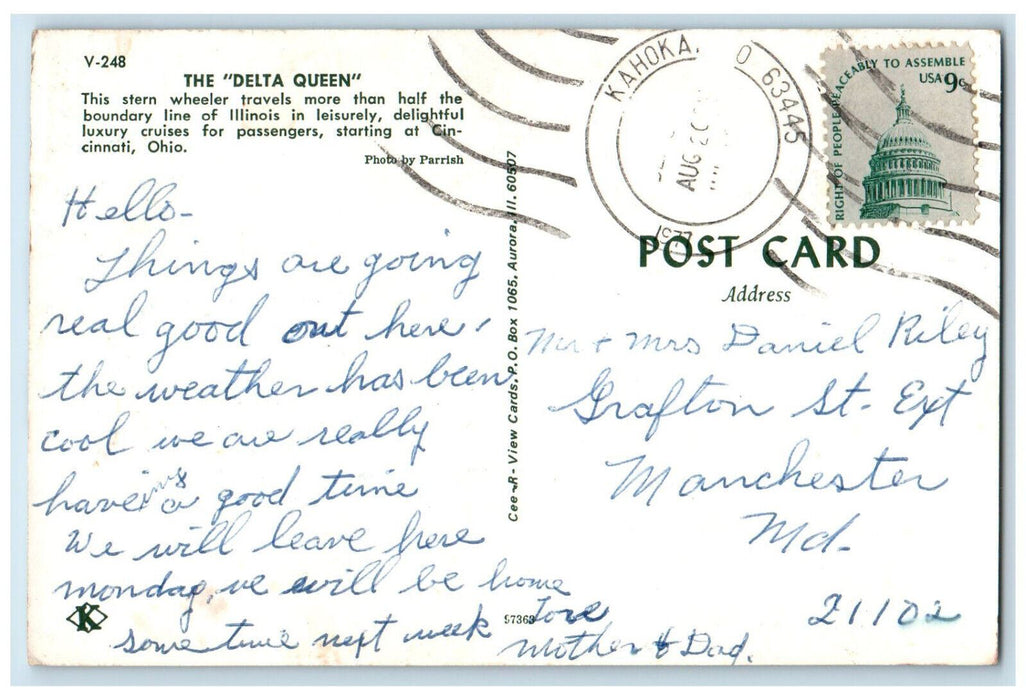 V-248
THE "DELTA QUEEN"
This stern wheeler travels more than half the
boundary line of Illinois in leisurely, delightful
luxury cruises for passengers, starting at Cin-
cinnati, Ohio.
Photo by Parrish
Hello-
Things are going
real good out here,
the weather has been
cool we are really
haveing a good time
We will leave here
monday, we will be home
some time next week
Love
Mother & Dad.
K
97369
Cee-R-View Cards, P.O. Box 1065, Aurora, Ill. 60507
KAHOKA, O 63445
AUG 20
1977
RIGHT OF PEOPLE PEACEABLY TO ASSEMBLE
USA 9c
POST CARD
Address
Mr + Mrs Daniel Riley
Grafton St. Ext
Manchester
Md.
21102